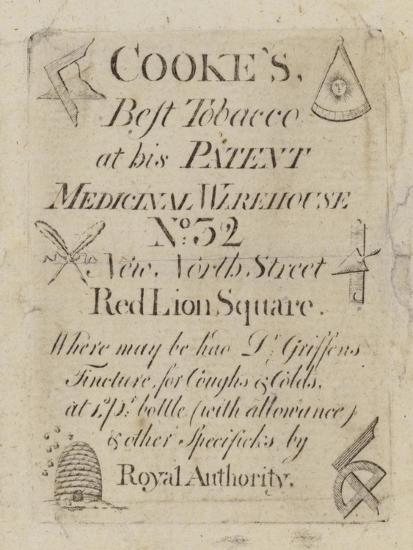 COOKE'S,
Best Tobacco
at his PATENT
MEDICINAL WAREHOUSE
No. 32
New North Street
Red Lion Square.
Where may be had Dr. Griffens
Tincture, for Coughs & Colds,
at bottle (with allowance)
& other Specificks by
Royal Authority.